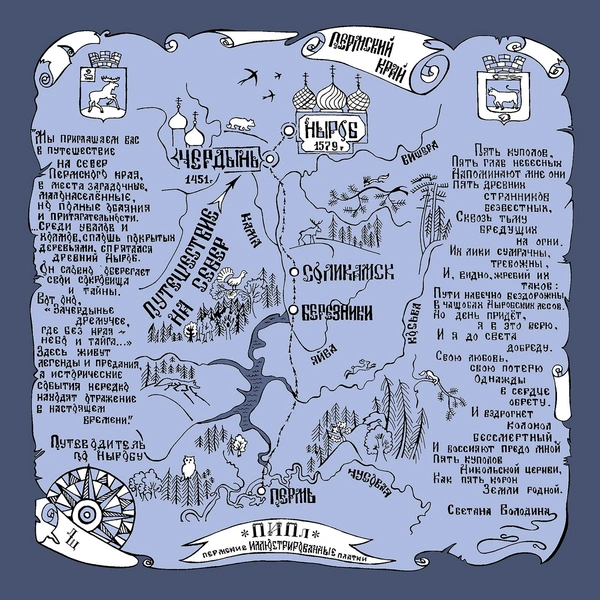 Пермский
край
Мы приглашаем вас
в путешествие
на север
Пермского края,
в места загадочные,
малонаселённые,
но полные обаяния
и притягательности.
...Среди увалов и
холмов, сплошь покрытых
деревьями, спрятался
древний Ныроб.
Он словно оберегает
свои сокровища
и тайны.
Вот оно,
«Зачердынье
дремучее,
где без края –
небо и тайга...»
Здесь живут
легенды и предания,
а исторические
события нередко
находят отражение
в настоящем
времени."
Путеводитель
по Ныробу
Чердынь
1451г.
Ныроб
1579г.
Путешествие
на север
Кама
Вишера
Соликамск
Березники
Яйва
Косьва
Чусовая
Пермь
Пять куполов,
Пять глав небесных
Напоминают мне они
Пять древних
странников
безвестных,
Сквозь тьму
бредущих
на огни.
Их лики сумрачны,
тревожны,
И, видно, жребий их
таков:
Пути навечно бездорожны
В чащобах Ныробских лесов.
Но день придёт,
я в это верю,
И я до света
добреду.
Свою любовь,
свою потерю
Однажды
в сердце
обрету.
И вздрогнет
колокол
бессмертный,
И воссияют предо мной
Пять куполов
Никольской церкви,
Как пять корон
Земли родной.
Светлана Володина
*ПИПл*
пермские иллюстрированные платки